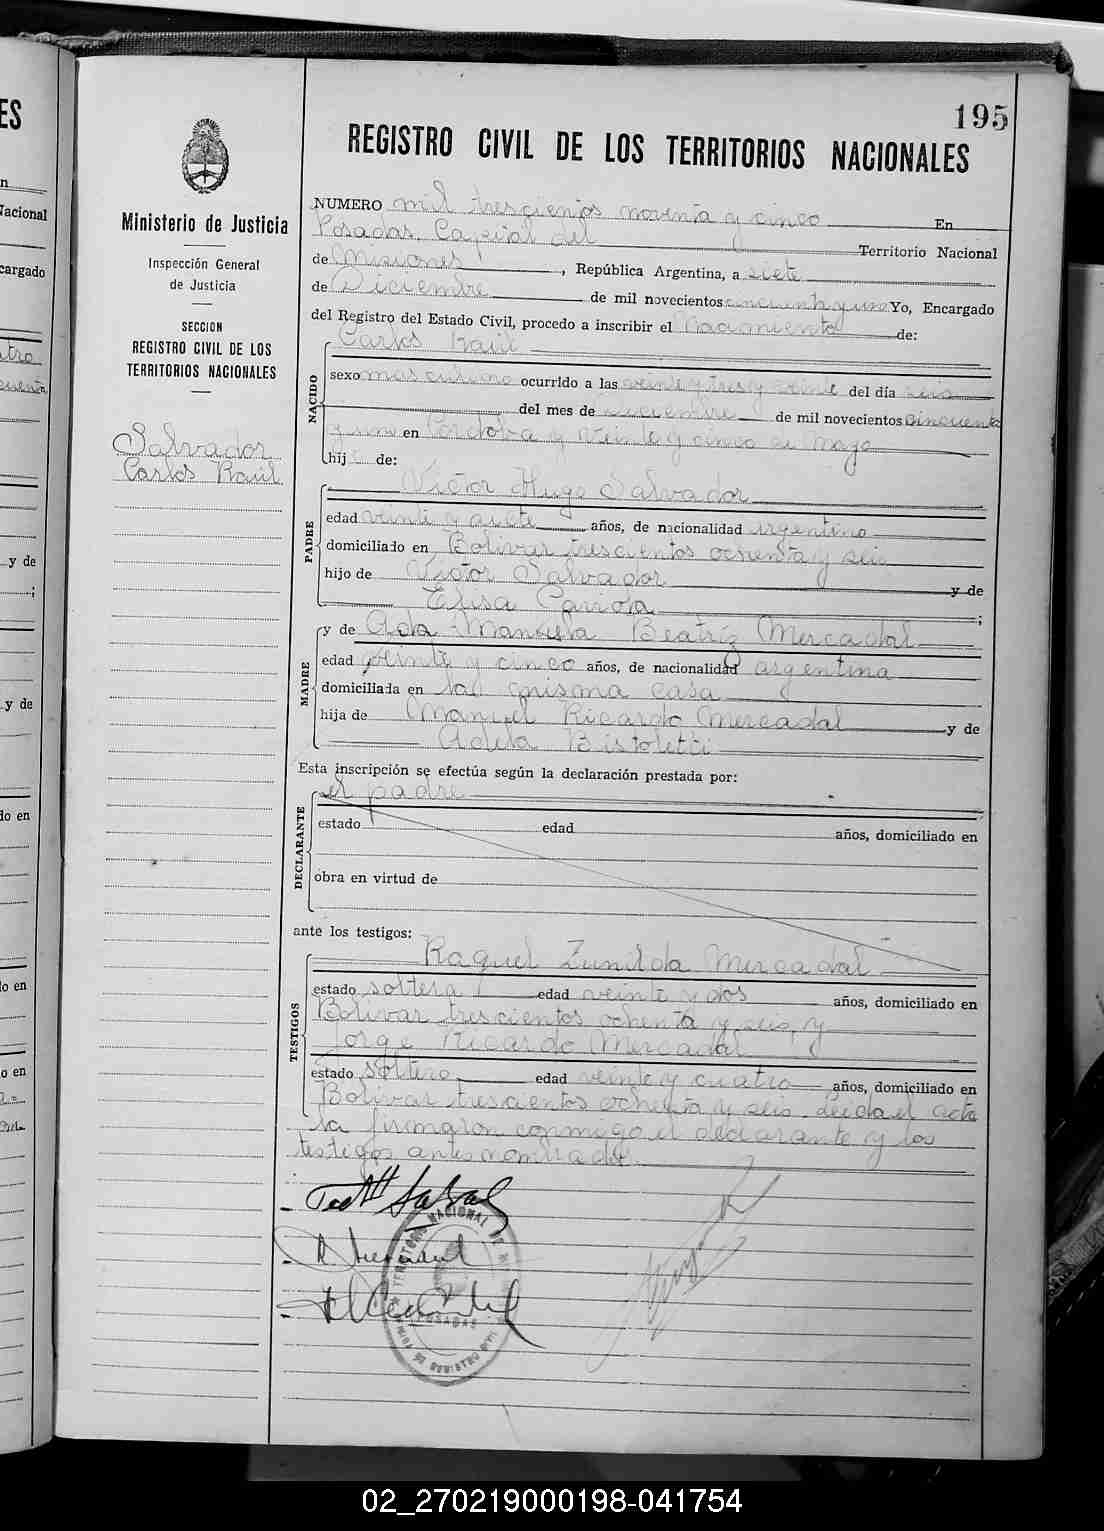 ES
n
Nacional
cargado
y de
;
y de
do en
do en
o en
195
REGISTRO CIVIL DE LOS TERRITORIOS NACIONALES
Ministerio de Justicia
Inspección General
de Justicia
SECCION
REGISTRO CIVIL DE LOS
TERRITORIOS NACIONALES
Salvador
Carlos Raúl
NUMERO mil trescientos noventa y cinco En
Posadas, Capital del Territorio Nacional
de Misiones, República Argentina, a siete
de Diciembre de mil novecientos cincuenta y uno Yo, Encargado
del Registro del Estado Civil, procedo a inscribir el Nacimiento de:
Carlos Raúl
NACIDO
sexo masculino ocurrido a las veinte y tres y veinte del día seis
del mes de diciembre de mil novecientos cincuenta
y uno en Córdoba y Veinte y cinco de Mayo
hij de:
PADRE
Víctor Hugo Salvador
edad veinte y siete años, de nacionalidad argentino
domiciliado en Bolivar trescientos ochenta y seis
hijo de Víctor Salvador y de
Elisa ;
MADRE
y de Ada Manuela Beatríz Mercadal
edad veinte y cinco años, de nacionalidad argentina
domiciliada en la misma casa
hija de Manuel Ricardo Mercadal y de
Adela Bistoletti
Esta inscripción se efectúa según la declaración prestada por:
DECLARANTE
el padre
estado edad años, domiciliado en
obra en virtud de
ante los testigos:
TESTIGOS
Raquel Zunilda Mercadal
estado soltera edad veinte y dos años, domiciliado en
Bolivar trescientos ochenta y seis, y
Jorge Ricardo Mercadal
estado soltero edad veinte y cuatro años, domiciliado en
Bolivar trescientos ochenta y seis. Leída el acta
la firmaron conmigo el declarante y los
testigos antes nombrados.
TERRITORIO NACIONAL DE
POSADAS
REGISTRO CIVIL
02_270219000198-041754